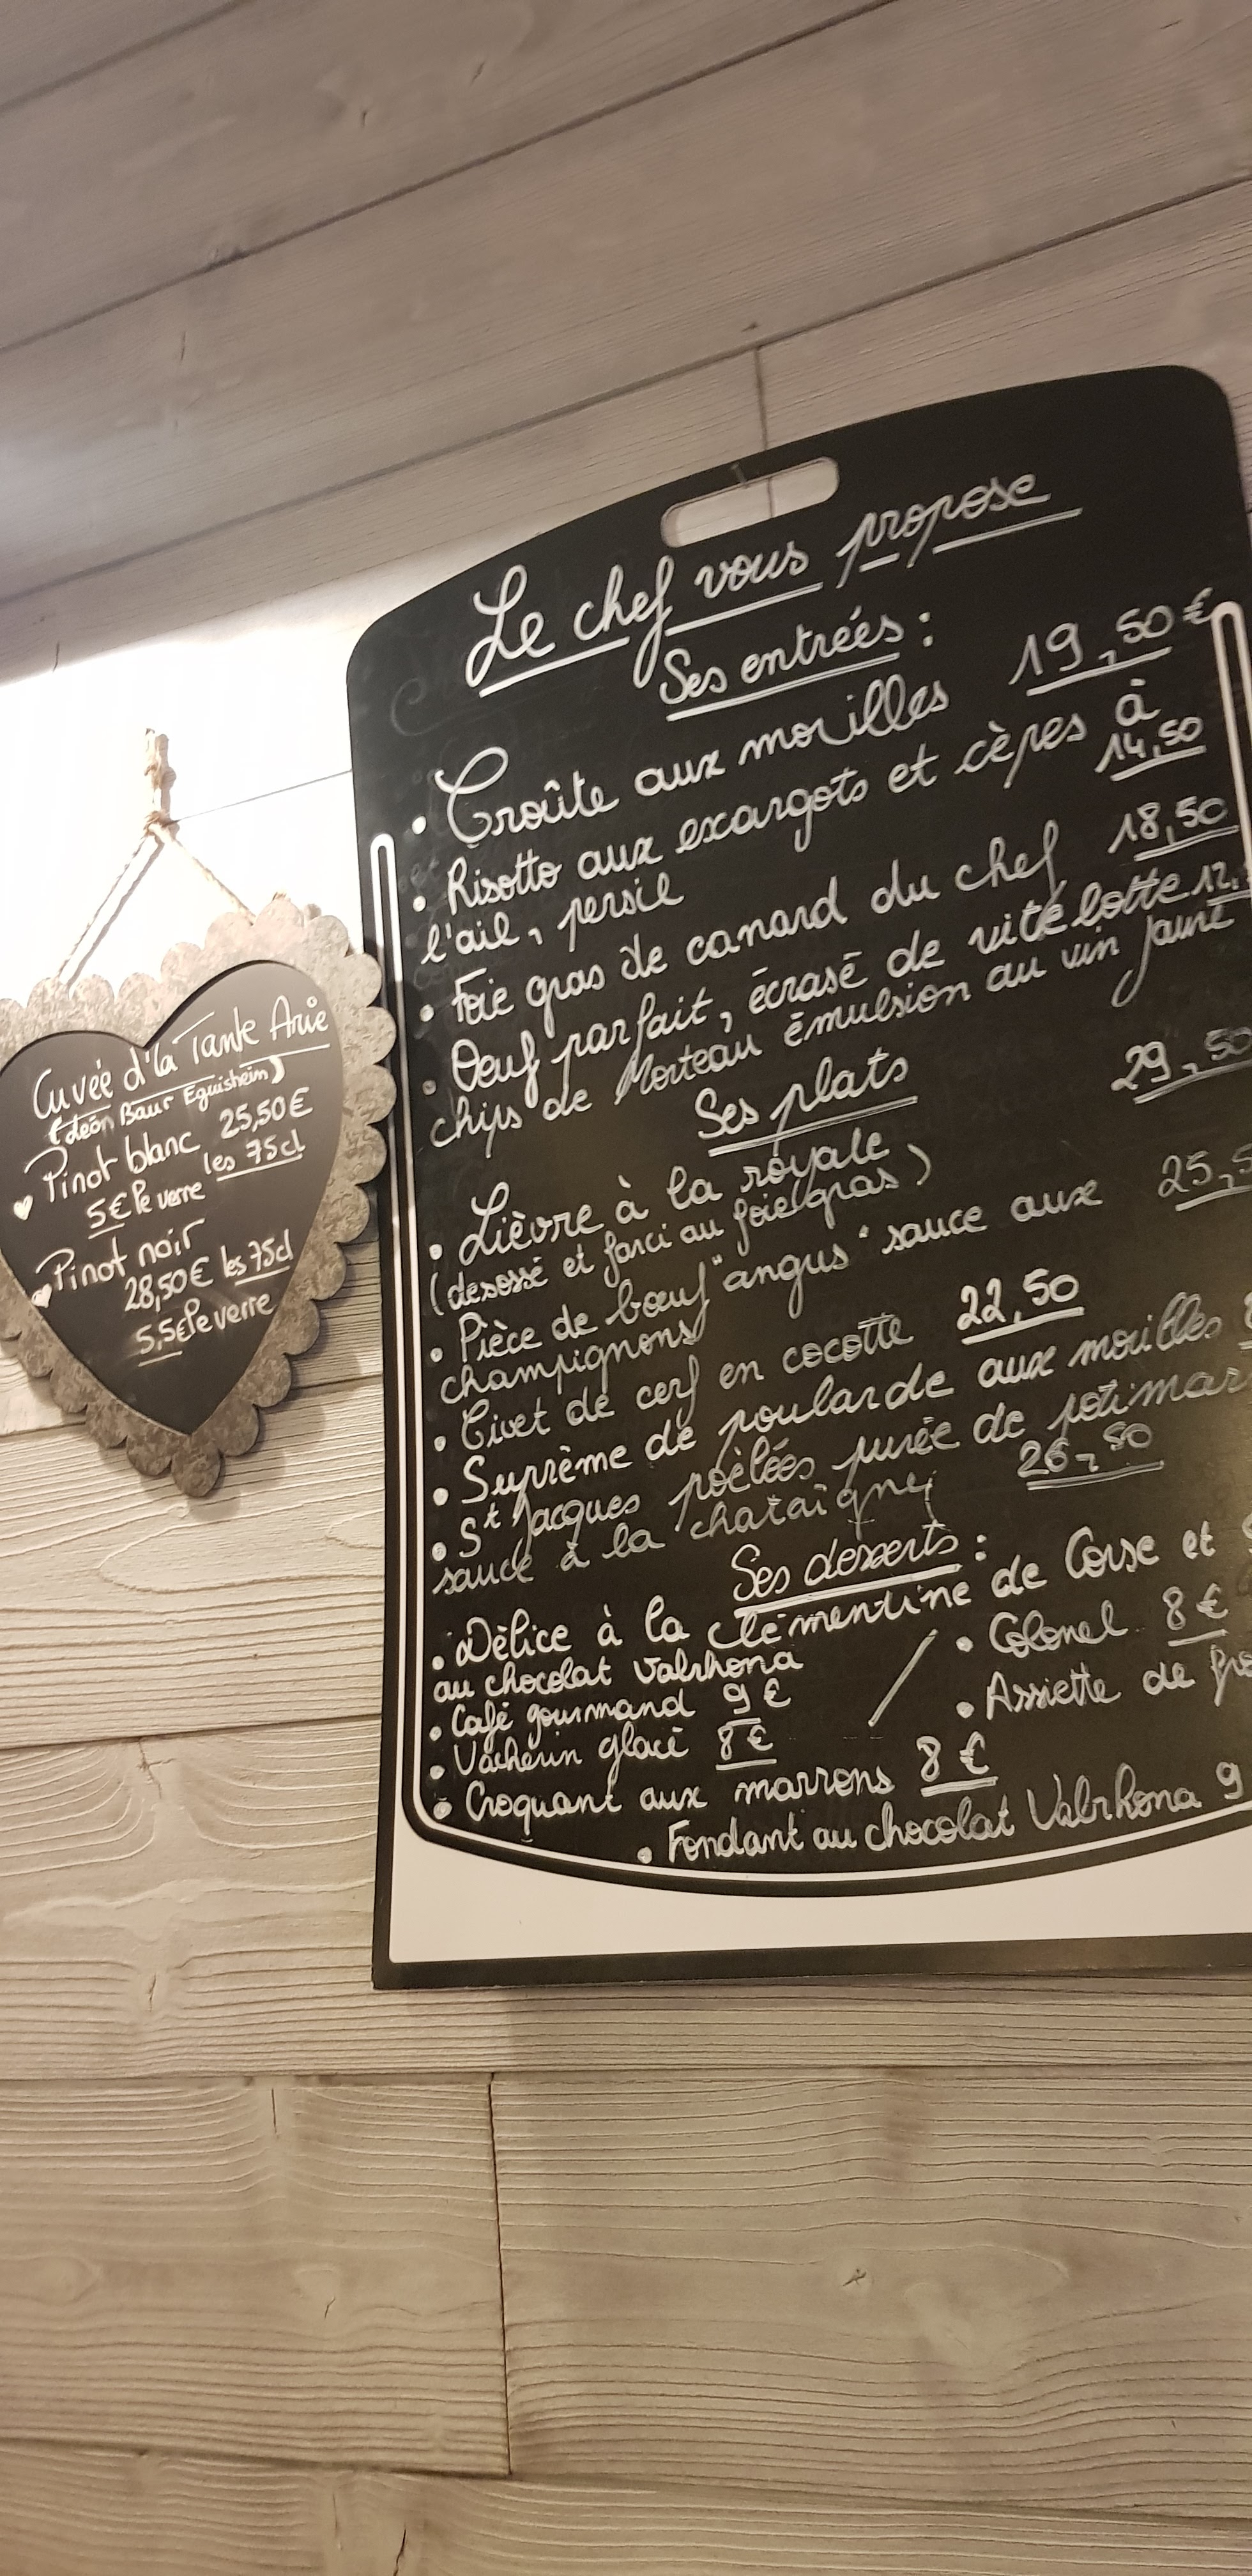 Cuvée d'la Tante Arie
(Léon Baur Eguisheim)
Pinot blanc 25,50€
les 75cl
5€ le verre
Pinot noir
28,50€ les 75cl
5,5€ le verre
Le chef vous propose
Ses entrées :
• Croûte aux morilles 19,50€
• Risotto aux excargots et cèpes à
l'ail, persil 14,50
• Foie gras de canard du chef 18,50
• Oeuf parfait, écrasé de vitelotte 12,
chips de Morteau émulsion au vin jaune
Ses plats
• Lièvre à la royale 29,50
(désossé et farci au foie gras)
• Pièce de bœuf "angus" sauce aux 25,5
champignons
• Civet de cerf en cocotte 22,50
• Suprème de poularde aux morilles
• St Jacques poêlées purée de potimar
sauce à la chataîgne 26,50
Ses desserts :
• Délice à la clémentine de Corse et
au chocolat Valrhona
• Colonel 8€
• Café gourmand 9€
• Assiette de fro
• Vacherin glacé 8€
• Croquant aux marrons 8€
• Fondant au chocolat Valrhona 9